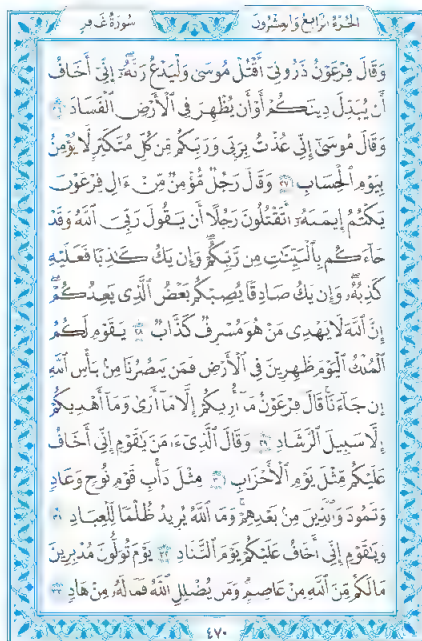 الجزء الرابع والعشرون سورة غافر
وَقَالَ فِرْعَوْنُ ذَرُونِي أَقْتُلْ مُوسَىٰ وَلْيَدْعُ رَبَّهُۥٓ إِنِّي أَخَافُ
أَن يُبَدِّلَ دِينَكُمْ أَوْ أَن يُظْهِرَ فِي ٱلْأَرْضِ ٱلْفَسَادَ ٢٦
وَقَالَ مُوسَىٰٓ إِنِّي عُذْتُ بِرَبِّي وَرَبِّكُم مِّن كُلِّ مُتَكَبِّرٍ لَّا يُؤْمِنُ
بِيَوْمِ ٱلْحِسَابِ ٢٧ وَقَالَ رَجُلٌ مُّؤْمِنٌ مِّنْ ءَالِ فِرْعَوْنَ
يَكْتُمُ إِيمَٰنَهُۥٓ أَتَقْتُلُونَ رَجُلًا أَن يَقُولَ رَبِّيَ ٱللَّهُ وَقَدْ
جَآءَكُم بِٱلْبَيِّنَٰتِ مِن رَّبِّكُمْ ۖ وَإِن يَكُ كَٰذِبًا فَعَلَيْهِ
كَذِبُهُۥ ۖ وَإِن يَكُ صَادِقًا يُصِبْكُم بَعْضُ ٱلَّذِي يَعِدُكُمْ ۖ
إِنَّ ٱللَّهَ لَا يَهْدِي مَنْ هُوَ مُسْرِفٌ كَذَّابٌ ٢٨ يَٰقَوْمِ لَكُمُ
ٱلْمُلْكُ ٱلْيَوْمَ ظَٰهِرِينَ فِي ٱلْأَرْضِ فَمَن يَنصُرُنَا مِنۢ بَأْسِ ٱللَّهِ
إِن جَآءَنَا ۚ قَالَ فِرْعَوْنُ مَآ أُرِيكُمْ إِلَّا مَآ أَرَىٰ وَمَآ أَهْدِيكُمْ
إِلَّا سَبِيلَ ٱلرَّشَادِ ٢٩ وَقَالَ ٱلَّذِيٓ ءَامَنَ يَٰقَوْمِ إِنِّيٓ أَخَافُ
عَلَيْكُم مِّثْلَ يَوْمِ ٱلْأَحْزَابِ ٣٠ مِثْلَ دَأْبِ قَوْمِ نُوحٍ وَعَادٍ
وَثَمُودَ وَٱلَّذِينَ مِنۢ بَعْدِهِمْ ۚ وَمَا ٱللَّهُ يُرِيدُ ظُلْمًا لِّلْعِبَادِ ٣١
وَيَٰقَوْمِ إِنِّيٓ أَخَافُ عَلَيْكُمْ يَوْمَ ٱلتَّنَادِ ٣٢ يَوْمَ تُوَلُّونَ مُدْبِرِينَ
مَا لَكُم مِّنَ ٱللَّهِ مِنْ عَاصِمٍ ۗ وَمَن يُضْلِلِ ٱللَّهُ فَمَا لَهُۥ مِنْ هَادٍ ٣٣
٤٧٠